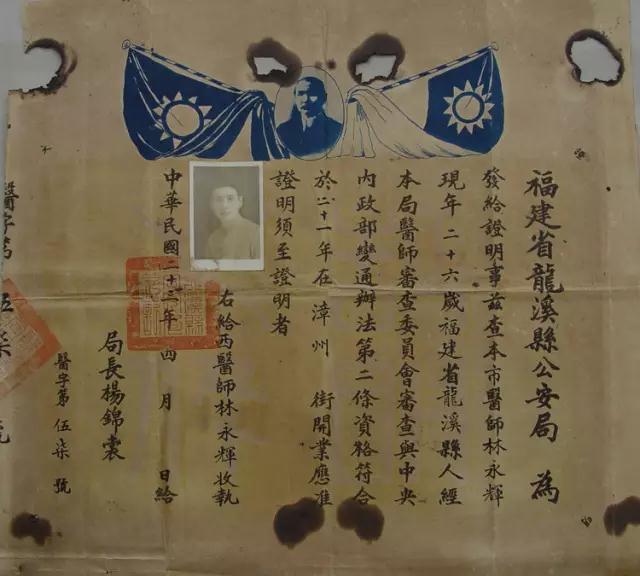 福建省龍溪縣公安局 為
發給證明事茲查本市醫師林永輝
現年二十六歲福建省龍溪縣人經
本局醫師審查委員會審查與中央
內政部變通辦法第二條資格符合
於二十一年在漳州 街開業應准
證明須至證明者
右給西醫師林永輝收執
中華民國二十三年 四 月 日給
局長楊錦裳
醫字第 伍柒 號
醫字第 伍柒 號